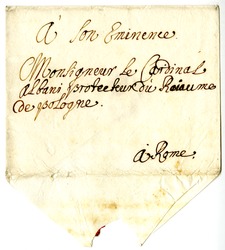 A son Eminence
Monsigneur le Cardinal
Albani protecteur du Roiaume
de pologne.
à Rome.